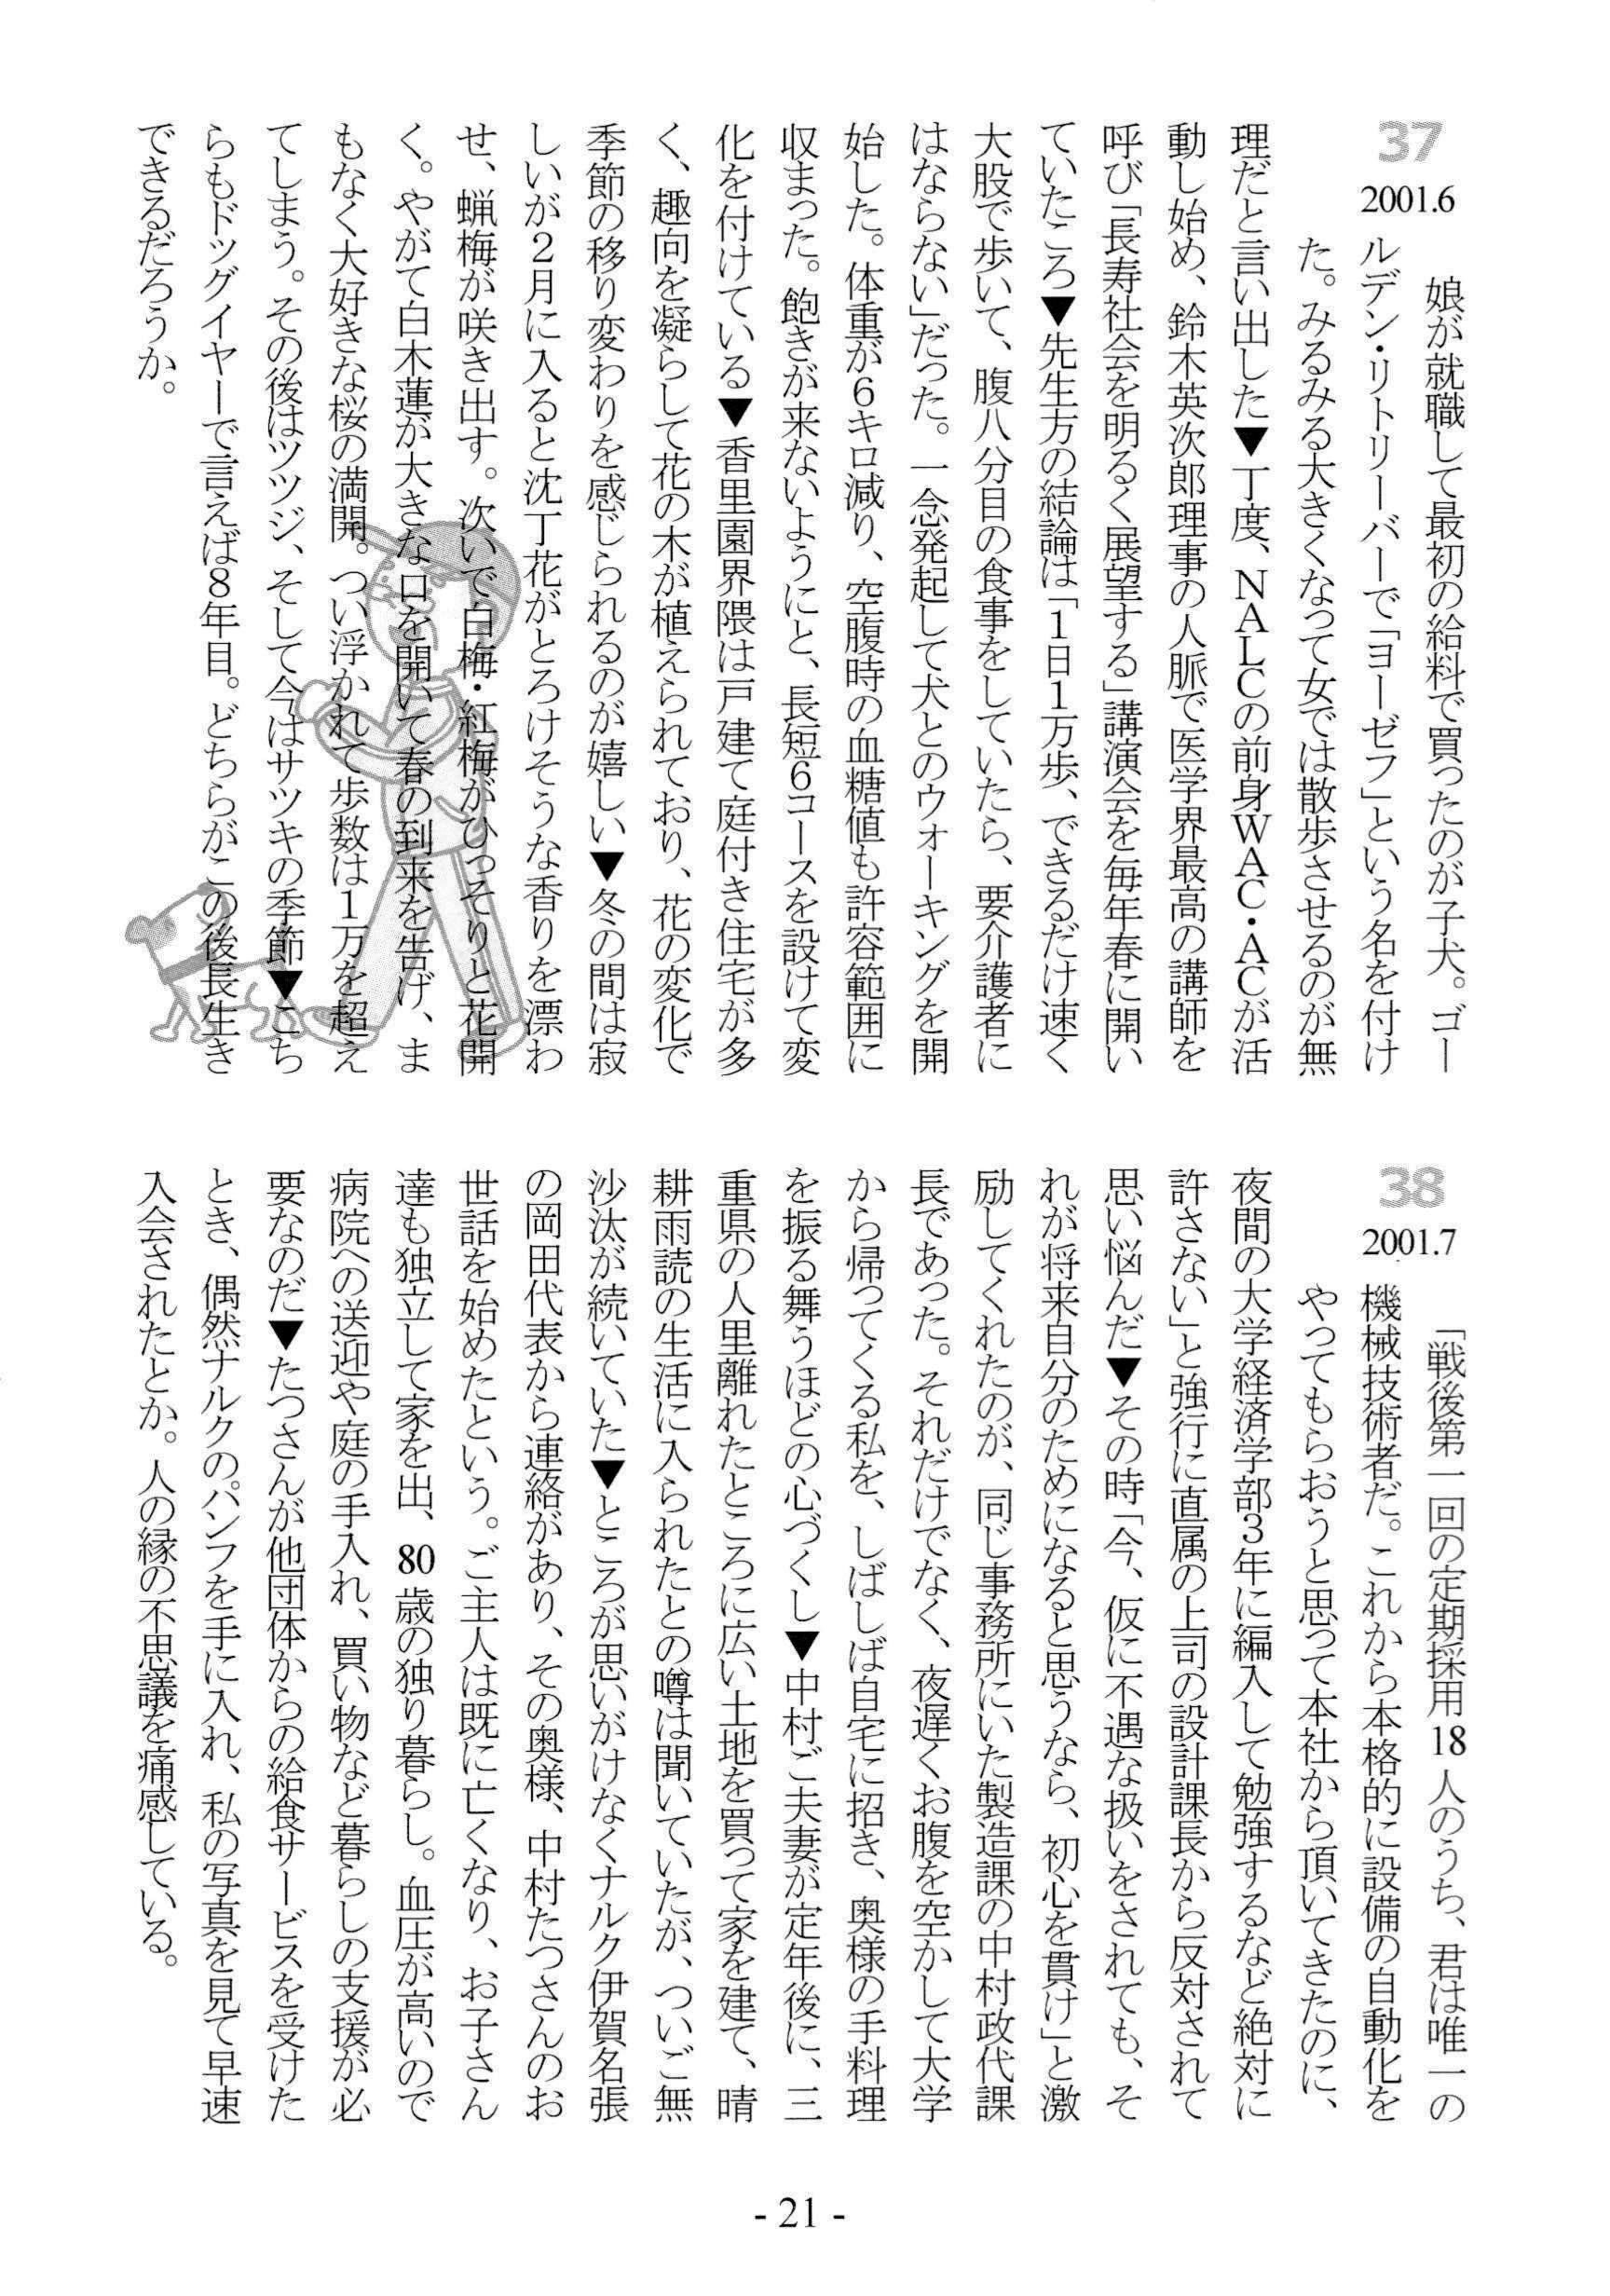 37
2001.6
娘が就職して最初の給料で買ったのが子犬。ゴー
ルデン・リトリーバーで「ヨーゼフ」という名を付け
た。みるみる大きくなって女では散歩させるのが無
理だと言い出した▼丁度、NALCの前身WAC・ACが活
動し始め、鈴木英次郎理事の人脈で医学界最高の講師を
呼び「長寿社会を明るく展望する」講演会を毎年春に開い
ていたころ▼先生方の結論は「1日1万歩、できるだけ速く
大股で歩いて、腹八分目の食事をしていたら、要介護者に
はならない」だった。一念発起して犬とのウォーキングを開
始した。体重が6キロ減り、空腹時の血糖値も許容範囲に
収まった。飽きが来ないようにと、長短6コースを設けて変
化を付けている▼香里園界隈は戸建て庭付き住宅が多
く、趣向を凝らして花の木が植えられており、花の変化で
季節の移り変わりを感じられるのが嬉しい▼冬の間は寂
しいが2月に入ると沈丁花がとろけそうな香りを漂わ
せ、蝋梅が咲き出す。次いで白梅・紅梅がひっそりと花開
く。やがて白木蓮が大きな口を開いて春の到来を告げ、ま
もなく大好きな桜の満開。つい浮かれて歩数は1万を超え
てしまう。その後はツツジ、そして今はサツキの季節▼こち
らもドッグイヤーで言えば8年目。どちらがこの後長生き
できるだろうか。
38
2001.7
「戦後第一回の定期採用18人のうち、君は唯一の
機械技術者だ。これから本格的に設備の自動化を
やってもらおうと思って本社から頂いてきたのに、
夜間の大学経済学部3年に編入して勉強するなど絶対に
許さない」と強行に直属の上司の設計課長から反対されて
思い悩んだ▼その時「今、仮に不遇な扱いをされても、そ
れが将来自分のためになると思うなら、初心を貫け」と激
励してくれたのが、同じ事務所にいた製造課の中村政代課
長であった。それだけでなく、夜遅くお腹を空かして大学
から帰ってくる私を、しばしば自宅に招き、奥様の手料理
を振る舞うほどの心づくし▼中村ご夫妻が定年後に、三
重県の人里離れたところに広い土地を買って家を建て、晴
耕雨読の生活に入られたとの噂は聞いていたが、ついご無
沙汰が続いていた▼ところが思いがけなくナルク伊賀名張
の岡田代表から連絡があり、その奥様、中村たつさんのお
世話を始めたという。ご主人は既に亡くなり、お子さん
達も独立して家を出、80歳の独り暮らし。血圧が高いので
病院への送迎や庭の手入れ、買い物など暮らしの支援が必
要なのだ▼たつさんが他団体からの給食サービスを受けた
とき、偶然ナルクのパンフを手に入れ、私の写真を見て早速
入会されたとか。人の縁の不思議を痛感している。
- 21 -